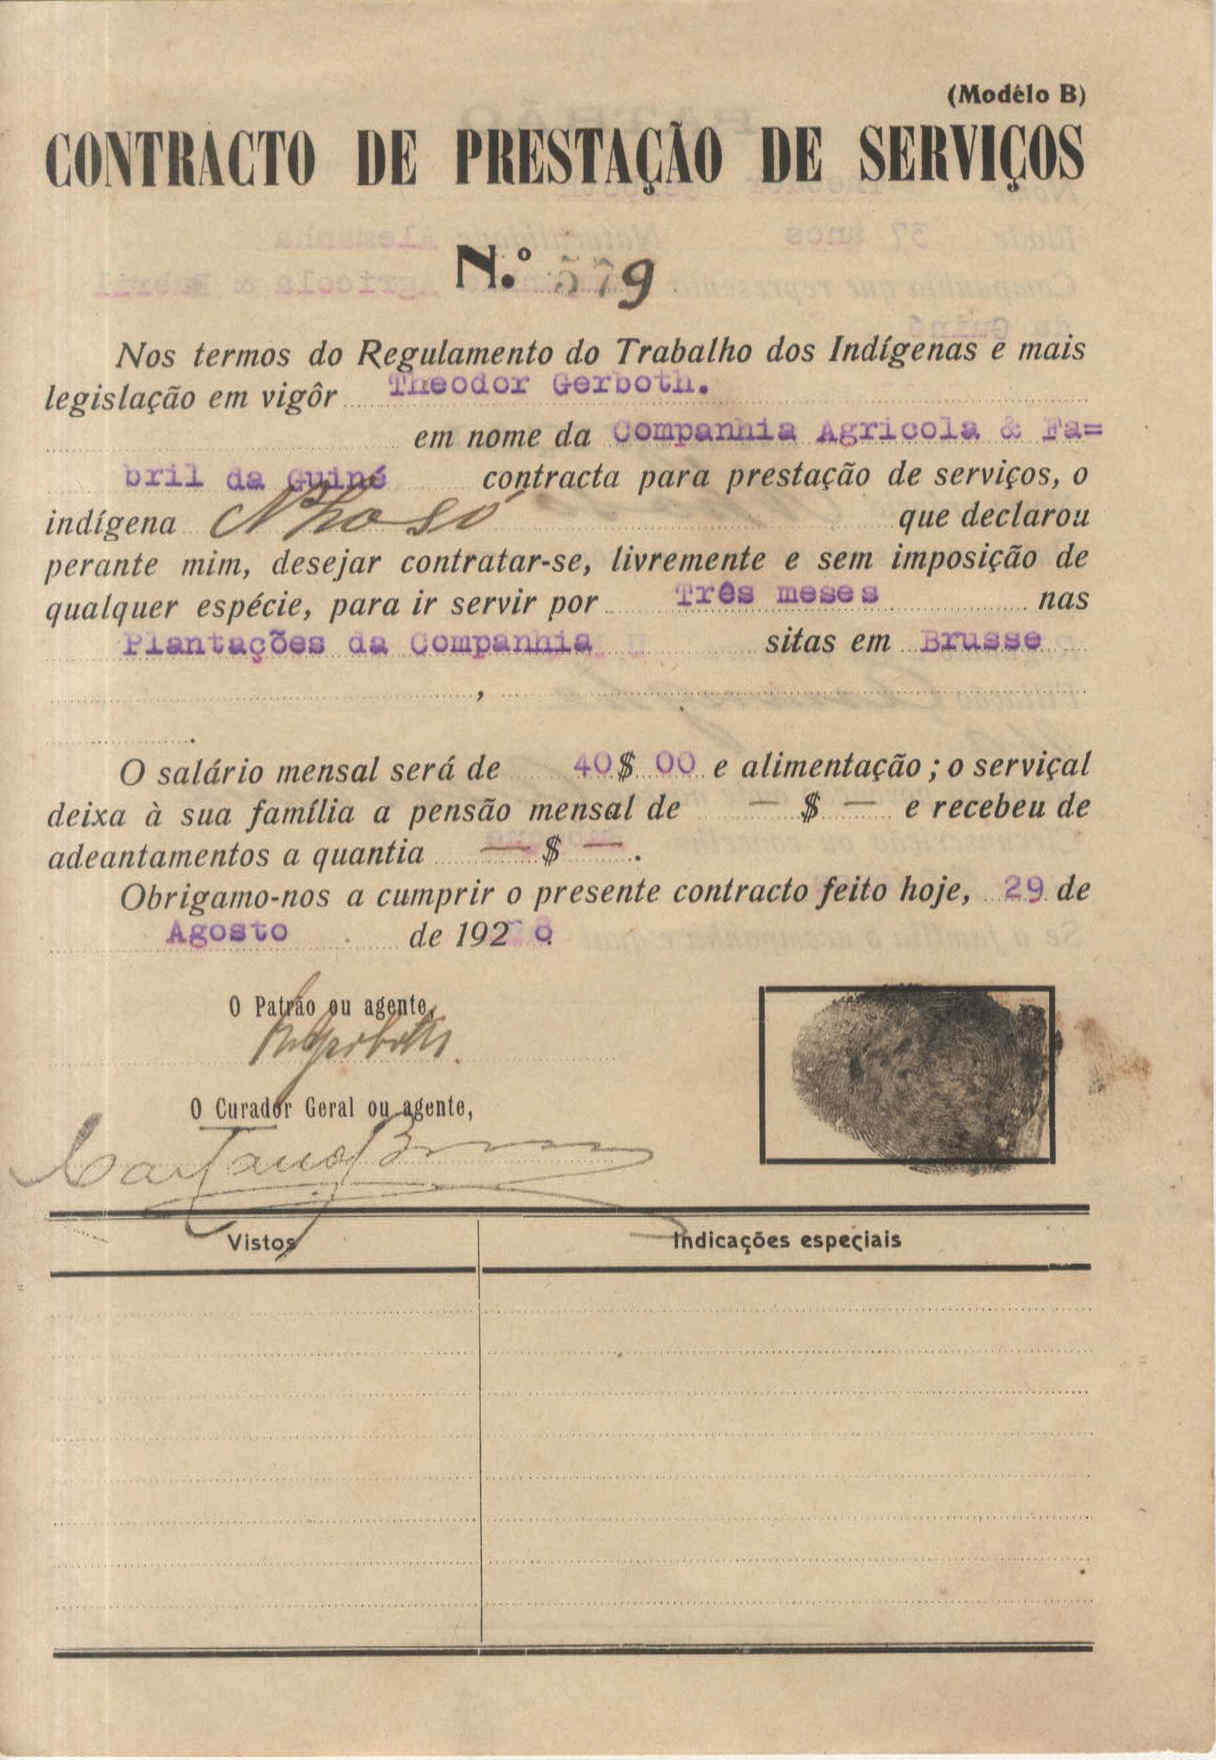 (Modêlo B)
CONTRACTO DE PRESTAÇÃO DE SERVIÇOS
N.º 579
Nos termos do Regulamento do Trabalho dos Indígenas e mais
legislação em vigôr Theodor Gerboth.
em nome da Companhia Agricola & Fa=
bril da Guiné contracta para prestação de serviços, o
indígena que declarou
perante mim, desejar contratar-se, livremente e sem imposição de
qualquer espécie, para ir servir por Três meses nas
Plantações da Companhia sitas em Brusse
,
.
O salário mensal será de 40$00 e alimentação; o serviçal
deixa à sua família a pensão mensal de — $ — e recebeu de
adeantamentos a quantia — $ — .
Obrigamo-nos a cumprir o presente contracto feito hoje, 29 de
Agosto de 192
O Patrão ou agente,
O Curador Geral ou agente,
Vistos
Indicações especiais